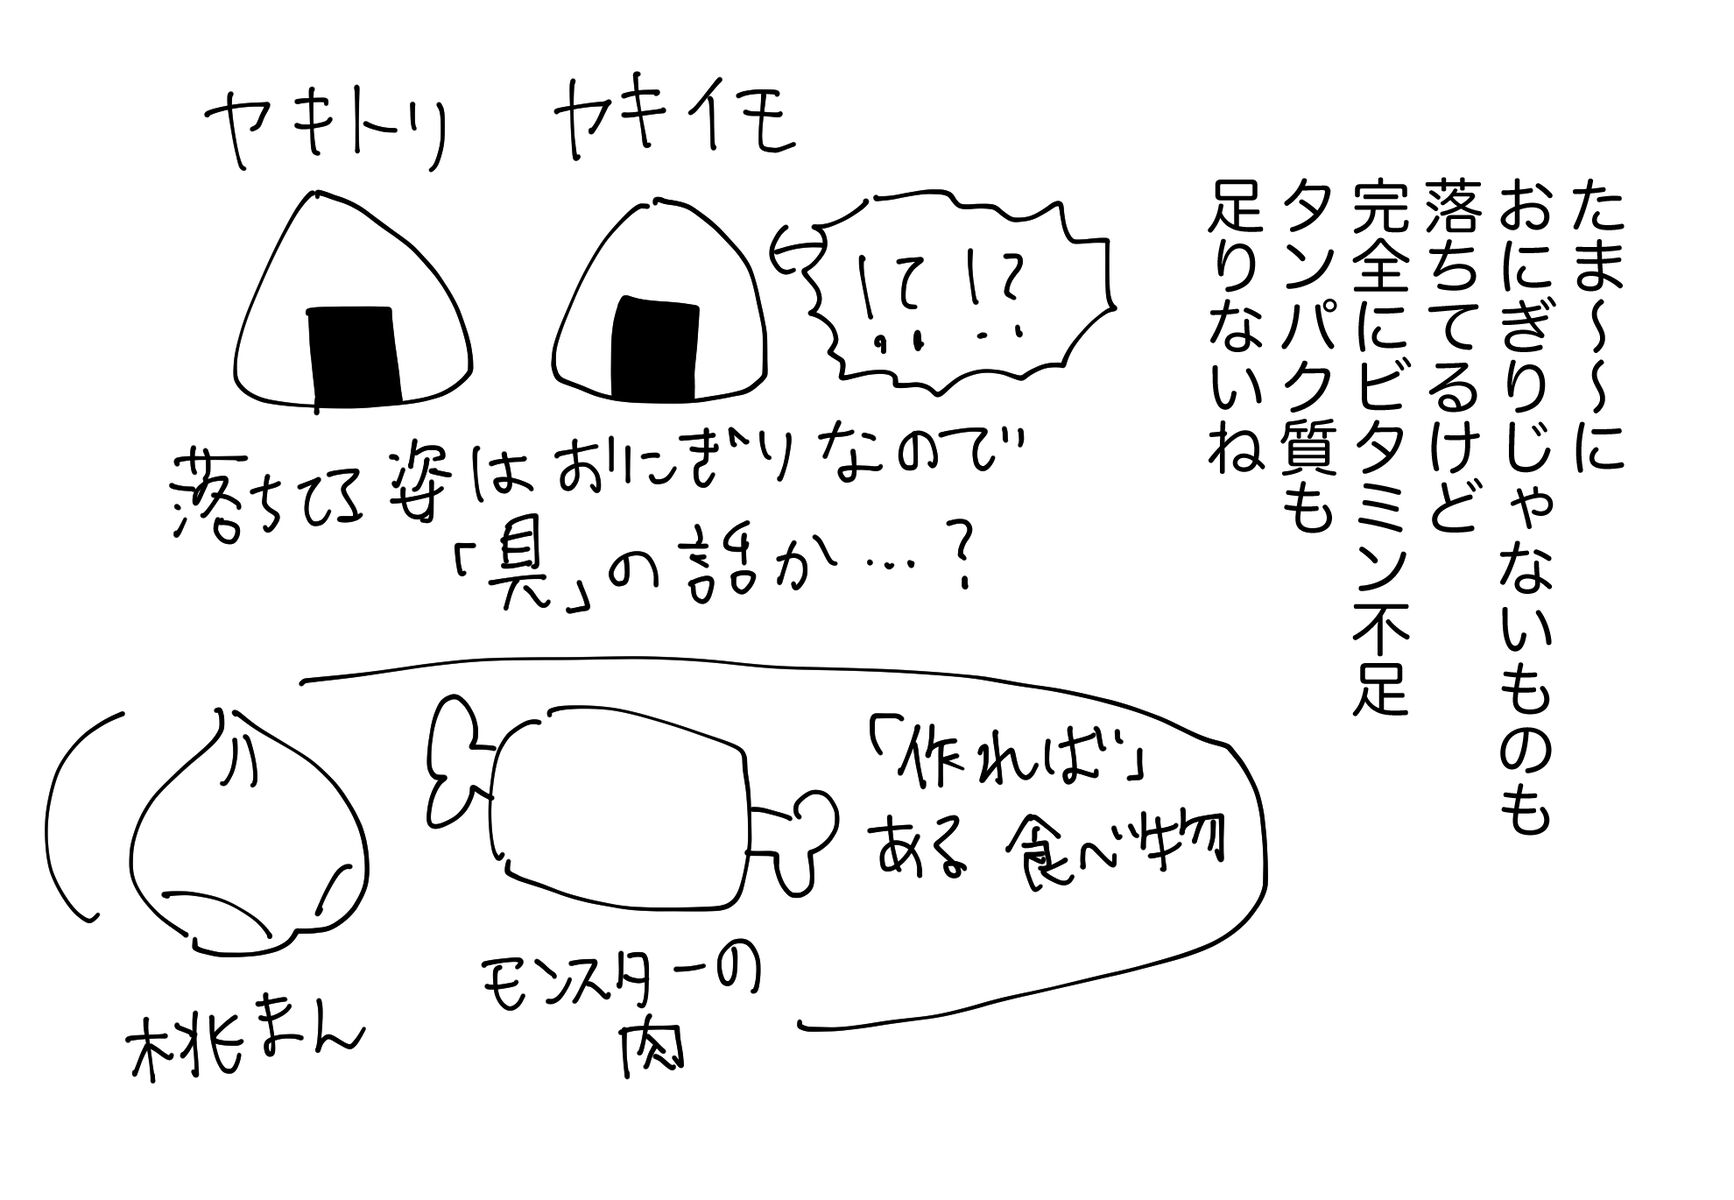 たま～～に
おにぎりじゃないものも
落ちてるけど
完全にビタミン不足
タンパク質も
足りないね
ヤキトリ
ヤキイモ
!?!?
落ちてる姿はおにぎりなので
「具」の話か…?
「作れば」
ある食べ物
桃まん
モンスターの
肉